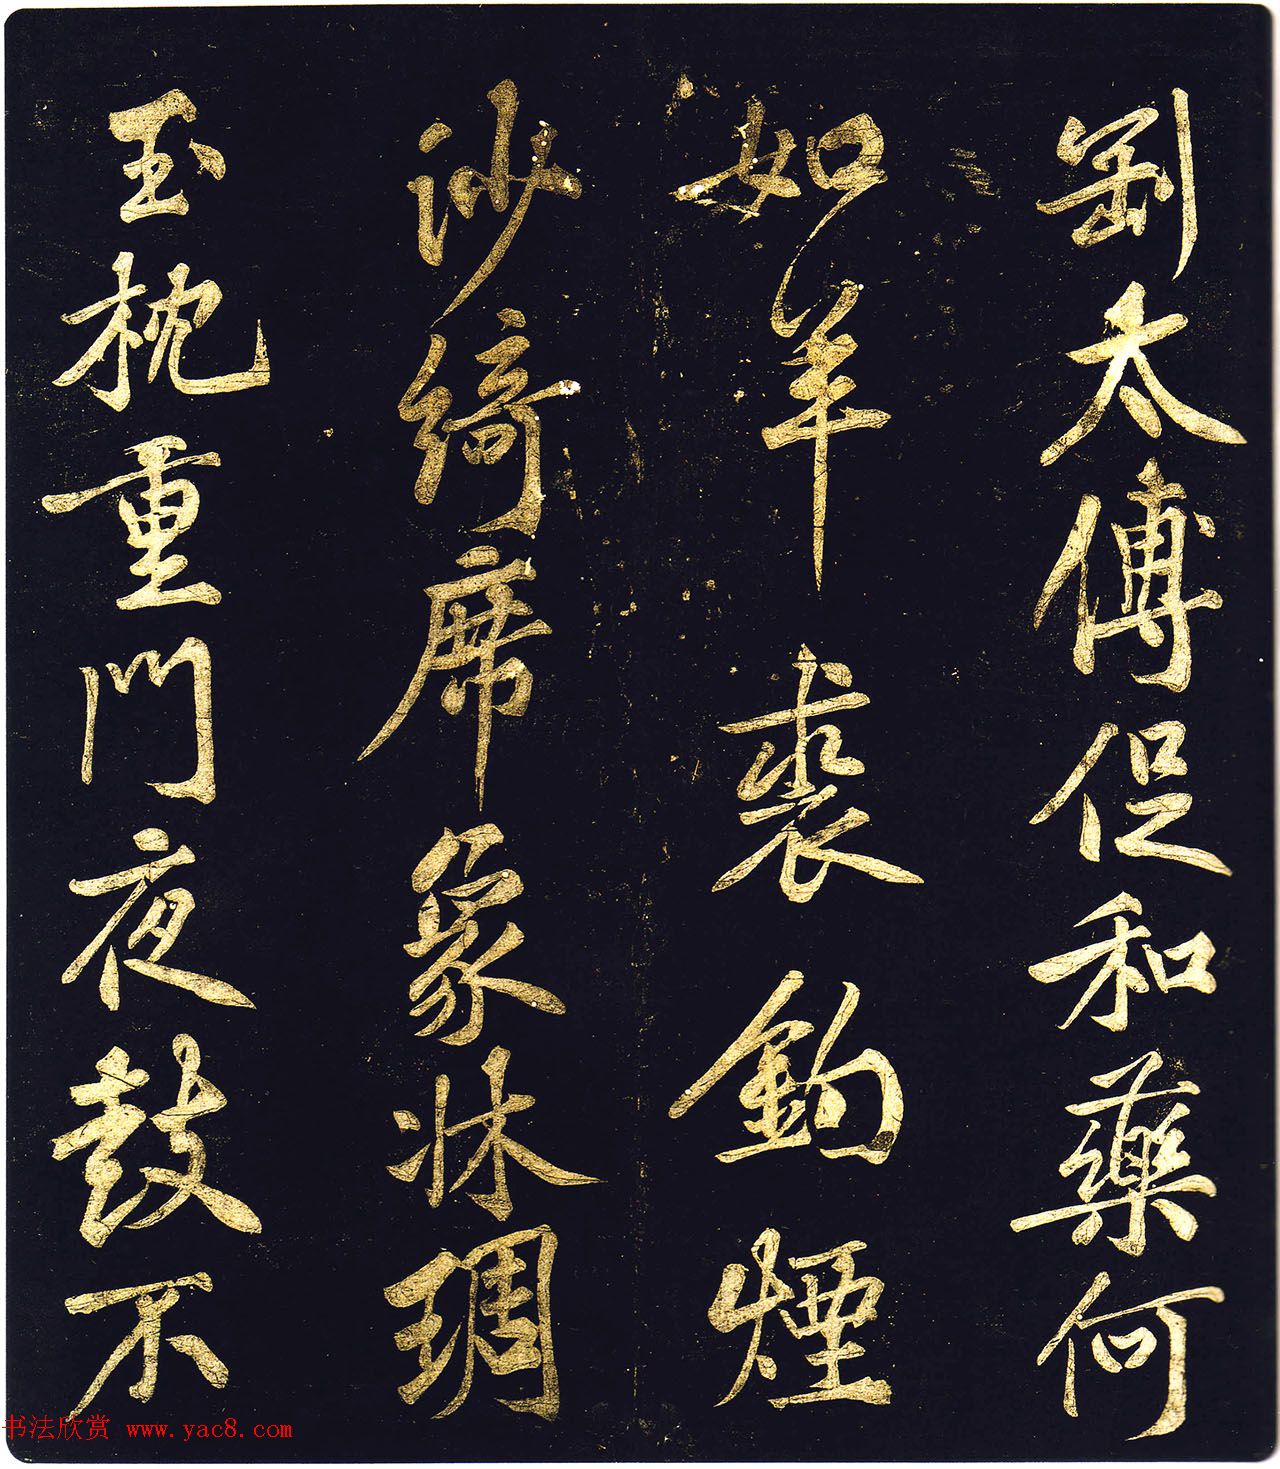 罰太傅促和藥何
如羊裘釣煙
沙綺席象牀琱
玉枕重門夜鼓不
书法欣赏 www.yac8.com